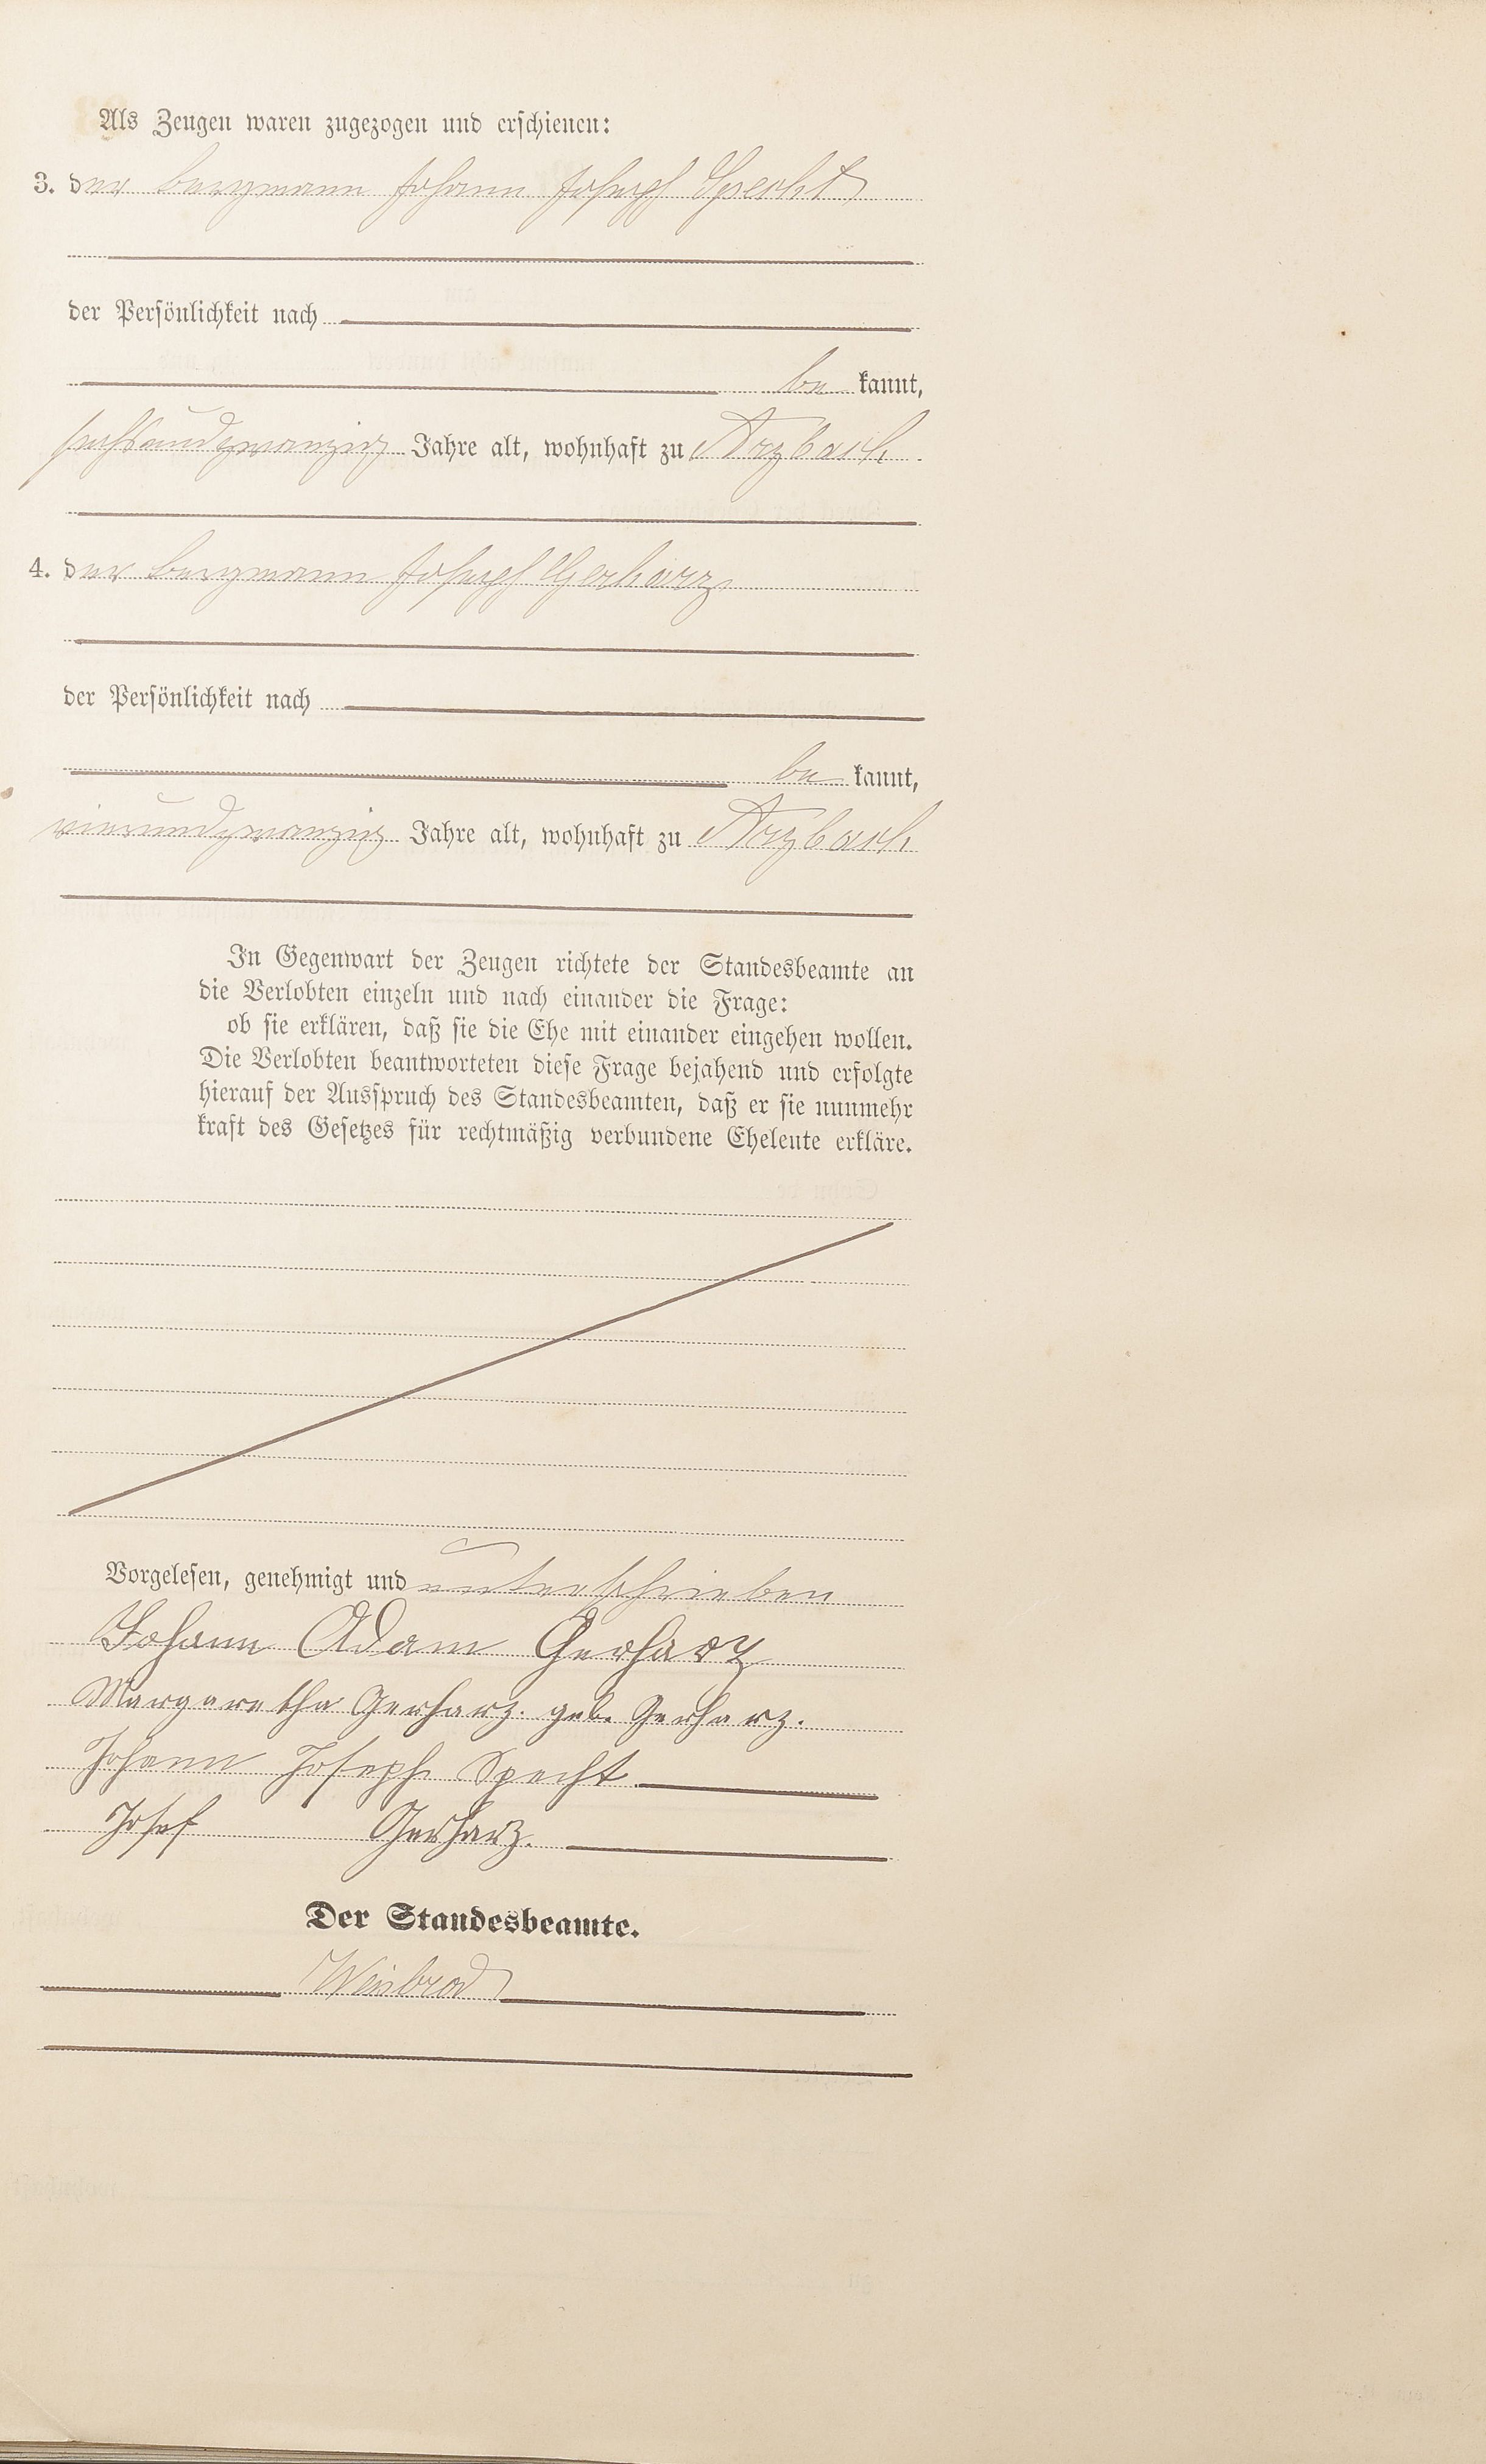 Als Zeugen waren zugezogen und erschienen:
3. der Bergmann Johann Joseph Specht
der Persönlichkeit nach
be kannt,
sechsundzwanzig Jahre alt, wohnhaft zu Arzbach
4. der Bergmann Joseph Gerharz
der Persönlichkeit nach
be kannt,
vierundzwanzig Jahre alt, wohnhaft zu Arzbach
In Gegenwart der Zeugen richtete der Standesbeamte an
die Verlobten einzeln und nach einander die Frage:
ob sie erklären, daß sie die Ehe mit einander eingehen wollen.
Die Verlobten beantworteten diese Frage bejahend und erfolgte
hierauf der Ausspruch des Standesbeamten, daß er sie nunmehr
kraft des Gesetzes für rechtmäßig verbundene Eheleute erkläre.
Vorgelesen, genehmigt und unterschrieben
Johann Adam Gerharz
Margaretha Gerharz. geb. Gerharz.
Johann Joseph Specht
Josef Gerharz.
Der Standesbeamte.
Weisbrod